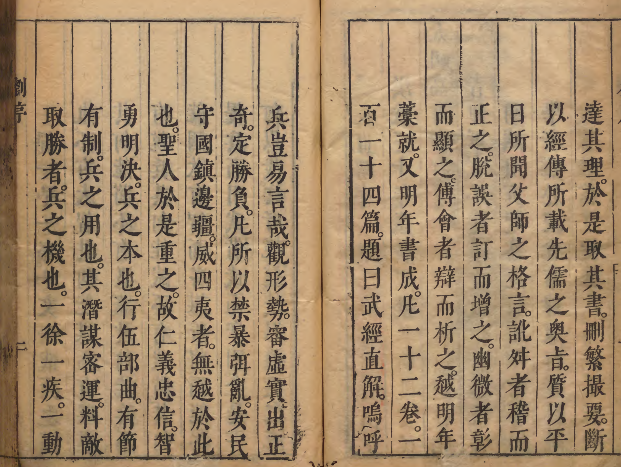 達其理。於是取其書。刪繁撮要。斷
以經傳所載先儒之奧旨。質以平
日所聞父師之格言。訛舛者稽而
正之。脫誤者訂而增之。幽微者彰
而顯之。傅會者辯而析之。越明年
藁就。又明年書成。凡一十二卷。一
百一十四篇。題曰武經直解。嗚呼
兵豈易言哉。觀形勢。審虛實。出正
奇。定勝負。凡所以禁暴弭亂。安民
守國鎮邊疆。威四夷者。無越於此
也。聖人於是重之。故仁義忠信。智
勇明決。兵之本也。行伍部曲。有節
有制。兵之用也。其潛謀審運。料敵
取勝者。兵之機也。一徐一疾。一動
劉序
二